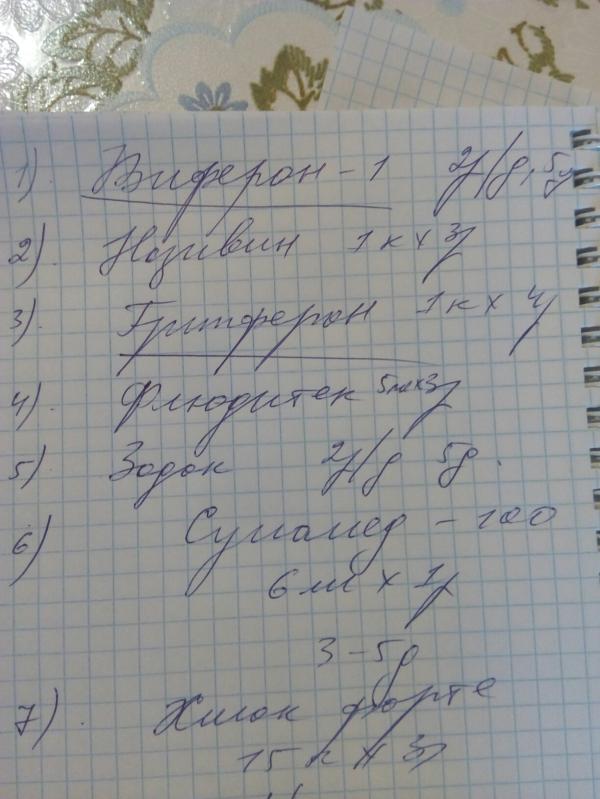 1). Виферон - 1 2р/д, 5д
2). Називин 1к х 3р
3). Гриппферон 1к х 4р
4). Флюдитек 5мл х 3р
5) Зодак 2р/д 5д.
6) Сумамед - 100
6 мл х 1р
3 - 5д
7). Хилак форте
15 к х 3р